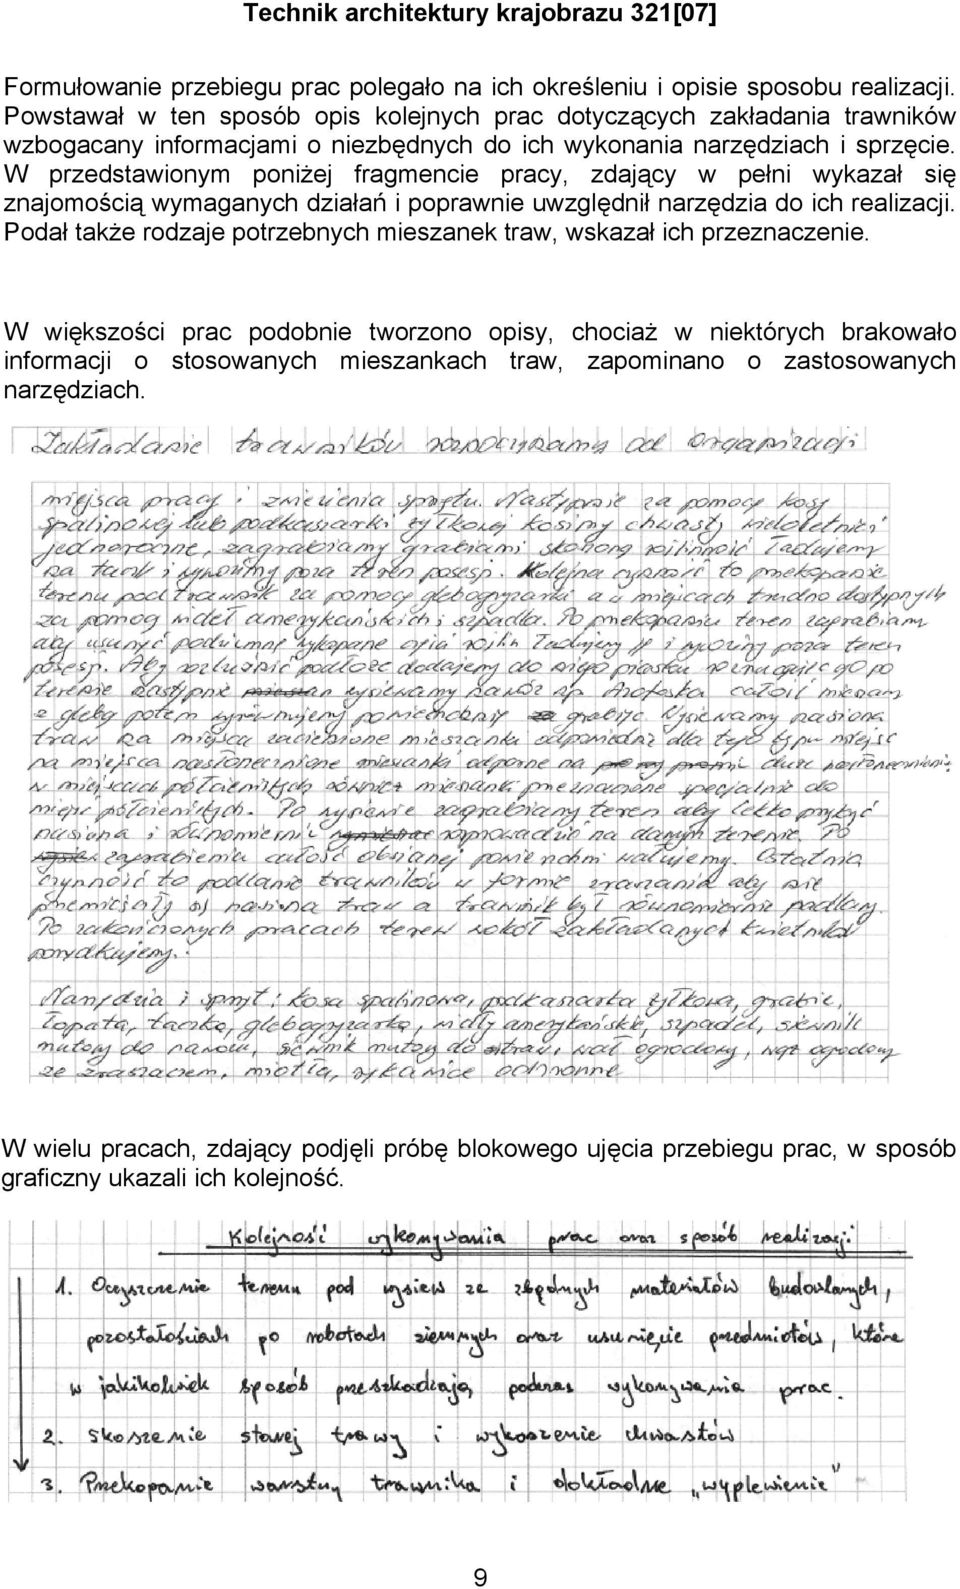 Technik architektury krajobrazu 321[07]
Formułowanie przebiegu prac polegało na ich określeniu i opisie sposobu realizacji.
Powstawał w ten sposób opis kolejnych prac dotyczących zakładania trawników
wzbogacany informacjami o niezbędnych do ich wykonania narzędziach i sprzęcie.
W przedstawionym poniżej fragmencie pracy, zdający w pełni wykazał się
znajomością wymaganych działań i poprawnie uwzględnił narzędzia do ich realizacji.
Podał także rodzaje potrzebnych mieszanek traw, wskazał ich przeznaczenie.
W większości prac podobnie tworzono opisy, chociaż w niektórych brakowało
informacji o stosowanych mieszankach traw, zapominano o zastosowanych
narzędziach.
Zakładanie trawników rozpoczynamy od organizacji
miejsca pracy i zniesienia sprzętu. Następnie za pomocą kosy
spalinowej lub podkaszarki żyłkowej kosimy chwasty wieloletnie i
jednoroczne, zagrabiamy grabiami skoszoną roślinność ładujemy
na taczki i wywozimy poza teren posesji. Kolejna czynność to przekopanie
terenu pod trawnik za pomocą glebogryzarki a w miejscach trudno dostępnych
za pomocą wideł amerykańskich i szpadla. Po przekopaniu teren zagrabiamy
aby usunąć podziemne wykopane części roślin ładujemy je i wywozimy poza teren
posesji. Aby rozluźnić podłoże dodajemy do niego piasku rozrzucając go po
terenie następnie wysiewamy nawóz np. Azofoska całość mieszamy
z glebą potem wyrównujemy powierzchnię grabiąc. Wysiewamy nasiona
traw na miejsca zacienione mieszanki odpowiednie dla tego typu miejsc
na miejsca nasłonecznione mieszanki odporne na duże nasłonecznienie
w miejscach półcienistych również mieszanki przeznaczone specjalnie do
miejsc półcienistych. Po wysiewie zagrabiamy teren aby lekko przykryć
nasiona i równomiernie rozprowadzić na danym terenie. Po
zagrabieniu całość obsianej powierzchni wałujemy. Ostatnia
czynność to podlanie trawników w formie zraszania aby nie
przemieściły się nasiona traw a trawnik był równomiernie podlany.
Po zakończonych pracach teren wokół zakładanych kwietników
porządkujemy.
Narzędzia i sprzęt: kosa spalinowa, podkaszarka żyłkowa, grabie,
łopata, taczka, glebogryzarka, widły amerykańskie, szpadel, siewnik
mały do nawozu, siewnik mały do traw, wał ogrodowy, wąż ogrodowy
ze zraszaczem, miotła, rękawice ochronne
W wielu pracach, zdający podjęli próbę blokowego ujęcia przebiegu prac, w sposób
graficzny ukazali ich kolejność.
Kolejność wykonywania prac oraz sposób realizacji
1. Oczyszczenie terenu pod wysiew ze zbędnych materiałów budowlanych,
pozostałościach po robotach ziemnych oraz usunięcie przedmiotów, które
w jakikolwiek sposób przeszkadzają podczas wykonywania prac.
2. Skoszenie starej trawy i wykoszenie chwastów
3. Przekopanie warstwy trawnika i dokładne „wyplewienie"
9